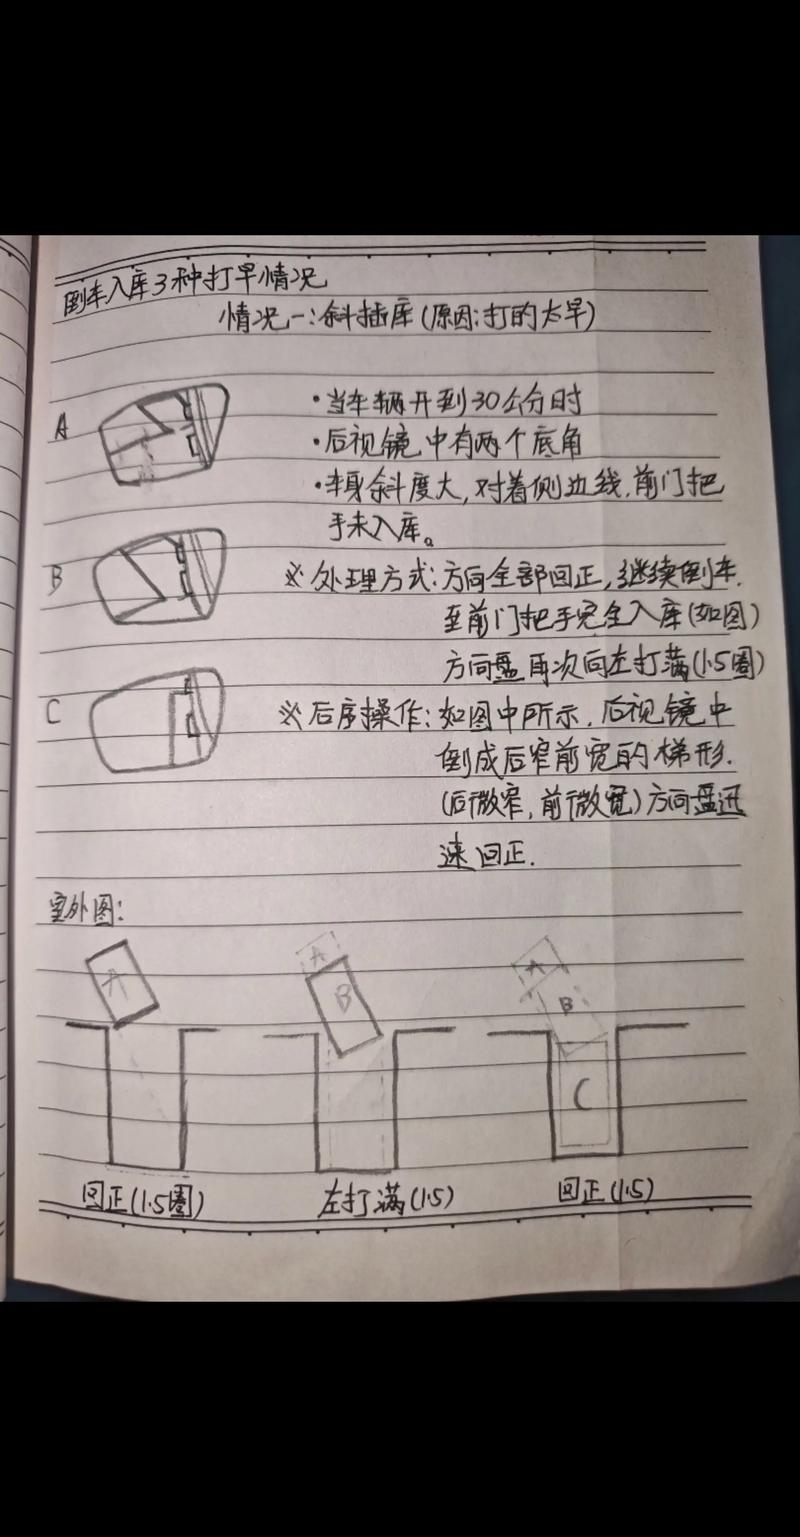 倒车入库3种打早情况
情况一:斜插库(原因:打的太早)
A
·当车辆开到30公分时
·后视镜中有两个底角
·车身斜度大,对着侧边线,前门把
手未入库。
B
※处理方式:方向全部回正,继续倒车.
至前门把手完全入库(如图)
方向盘再次向左打满(1.5圈)
C
※后序操作:如图中所示,后视镜中
倒成后窄前宽的梯形.
(后微窄,前微宽)方向盘迅
速回正.
室外图:
A
A
B
A
B
C
回正(1.5圈)
左打满(1.5)
回正(1.5)